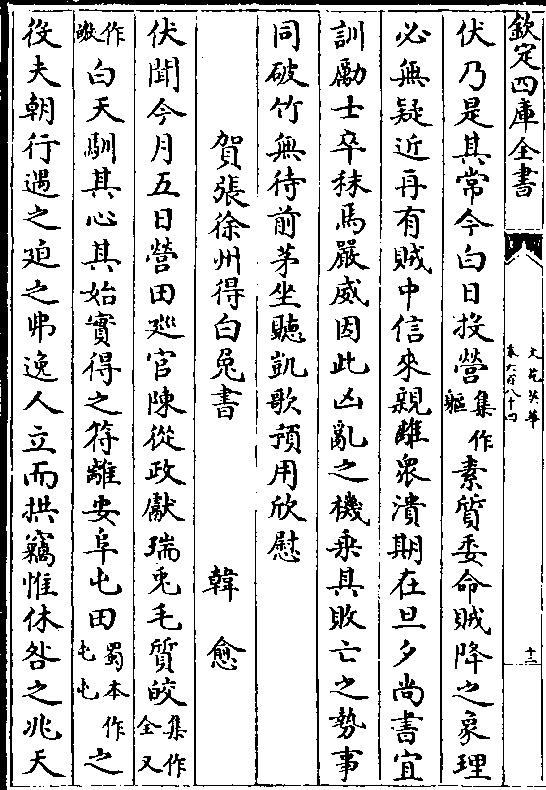 欽定四庫全書
文苑英華
卷六百八十四
十三
伏乃是其常今白日投營集作軀素質委命賊降之象理
必無疑近再有賊中信來親離衆潰期在旦夕尚書宜
訓勵士卒秣馬嚴威因此凶亂之機乗其敗亡之勢事
同破竹無待前茅坐聽凱歌預用欣慰
賀張徐州得白兎書
韓愈
伏聞今月五日營田廵官陳從政獻瑞兎毛質皎集作全又
作皦白天馴其心其始實得之符離安阜屯田蜀本作屯屯之
役夫朝行遇之廹之弗逸人立而拱竊惟休咎之兆天